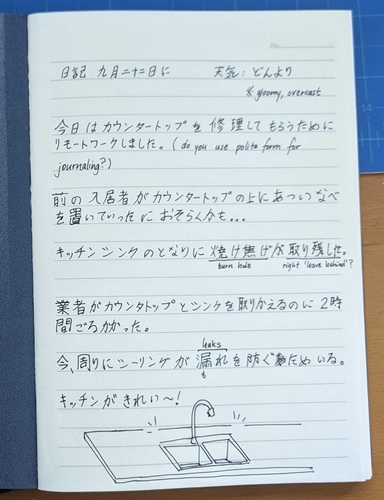 日記 九月二十二日に 天気：どんより
※ gloomy, overcast
今日はカウンタートップを修理してもらうために
リモートワークしました。(do you use polite form for
journaling?)
前の入居者がカウンタートップの上にあついなべ
を置いていったにおそらく
キッチンシンクのとなりに焼け焦げが取り残した。
burn hole right "leave behind"?
業者がカウンタートップとシンクを取りかえるのに2時
間ごろかかった。
leaks
今、周りにシーリングが漏れを防ぐ ためいる。
も
キッチンがきれい〜!